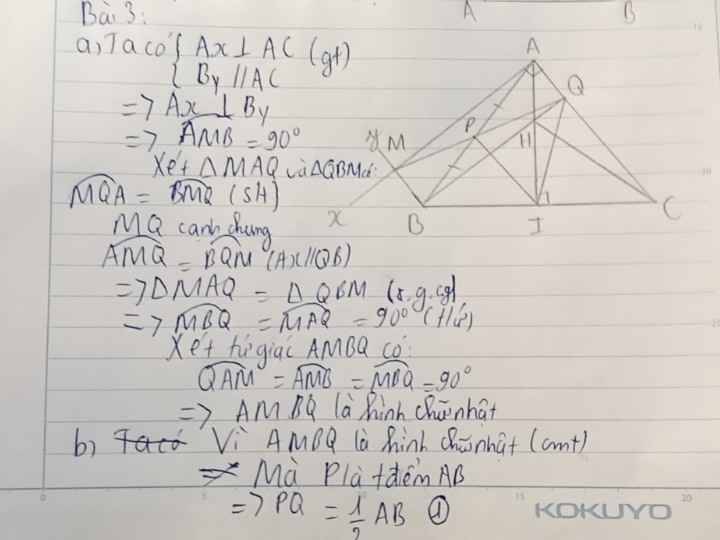 A B
Bài 3:
a, Ta có { Ax ⊥ AC (gt)
{ By // AC
=> Ax ⊥ By
=> AMB = 90°
Xét ΔMAQ và ΔQBM có:
MQA = BMQ (SLT)
MQ cạnh chung
AMQ = BQM (Ax//QB)
=> ΔMAQ = ΔQBM (g.c.g)
=> MBQ = MAQ = 90° (t/ứ)
Xét tứ giác AMBQ có:
QAM = AMB = MBQ = 90°
=> AMBQ là hình chữ nhật
b, Ta có Vì AMBQ là hình chữ nhật (cmt)
=> Mà P là tđiểm AB
=> PQ = 1/2 AB ①
A
Q
y M P H
x B I C
0 5 10 15 20
KOKUYO